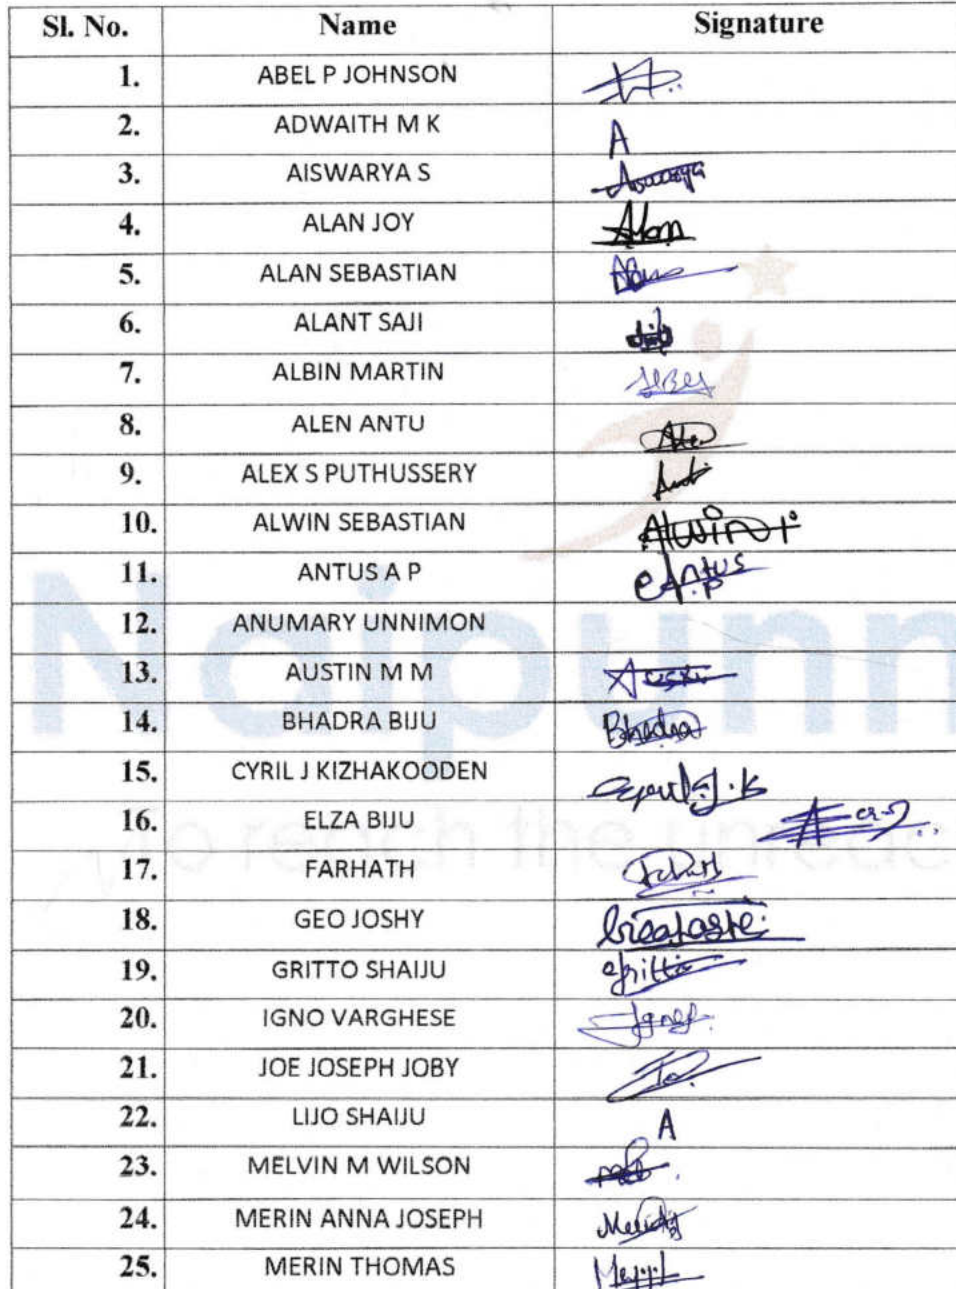 Sl. No. Name Signature
1. ABEL P JOHNSON
2. ADWAITH M K A
3. AISWARYA S Aswarya
4. ALAN JOY Alan
5. ALAN SEBASTIAN
6. ALANT SAJI
7. ALBIN MARTIN
8. ALEN ANTU Alen
9. ALEX S PUTHUSSERY
10. ALWIN SEBASTIAN Alwin
11. ANTUS A P Antus
12. ANUMARY UNNIMON
13. AUSTIN M M Austin
14. BHADRA BIJU Bhadra
15. CYRIL J KIZHAKOODEN Cyril J.K
16. ELZA BIJU
17. FARHATH
18. GEO JOSHY
19. GRITTO SHAIJU Gritto
20. IGNO VARGHESE
21. JOE JOSEPH JOBY
22. LIJO SHAIJU A
23. MELVIN M WILSON
24. MERIN ANNA JOSEPH
25. MERIN THOMAS
Naipunn
To reach the unreac